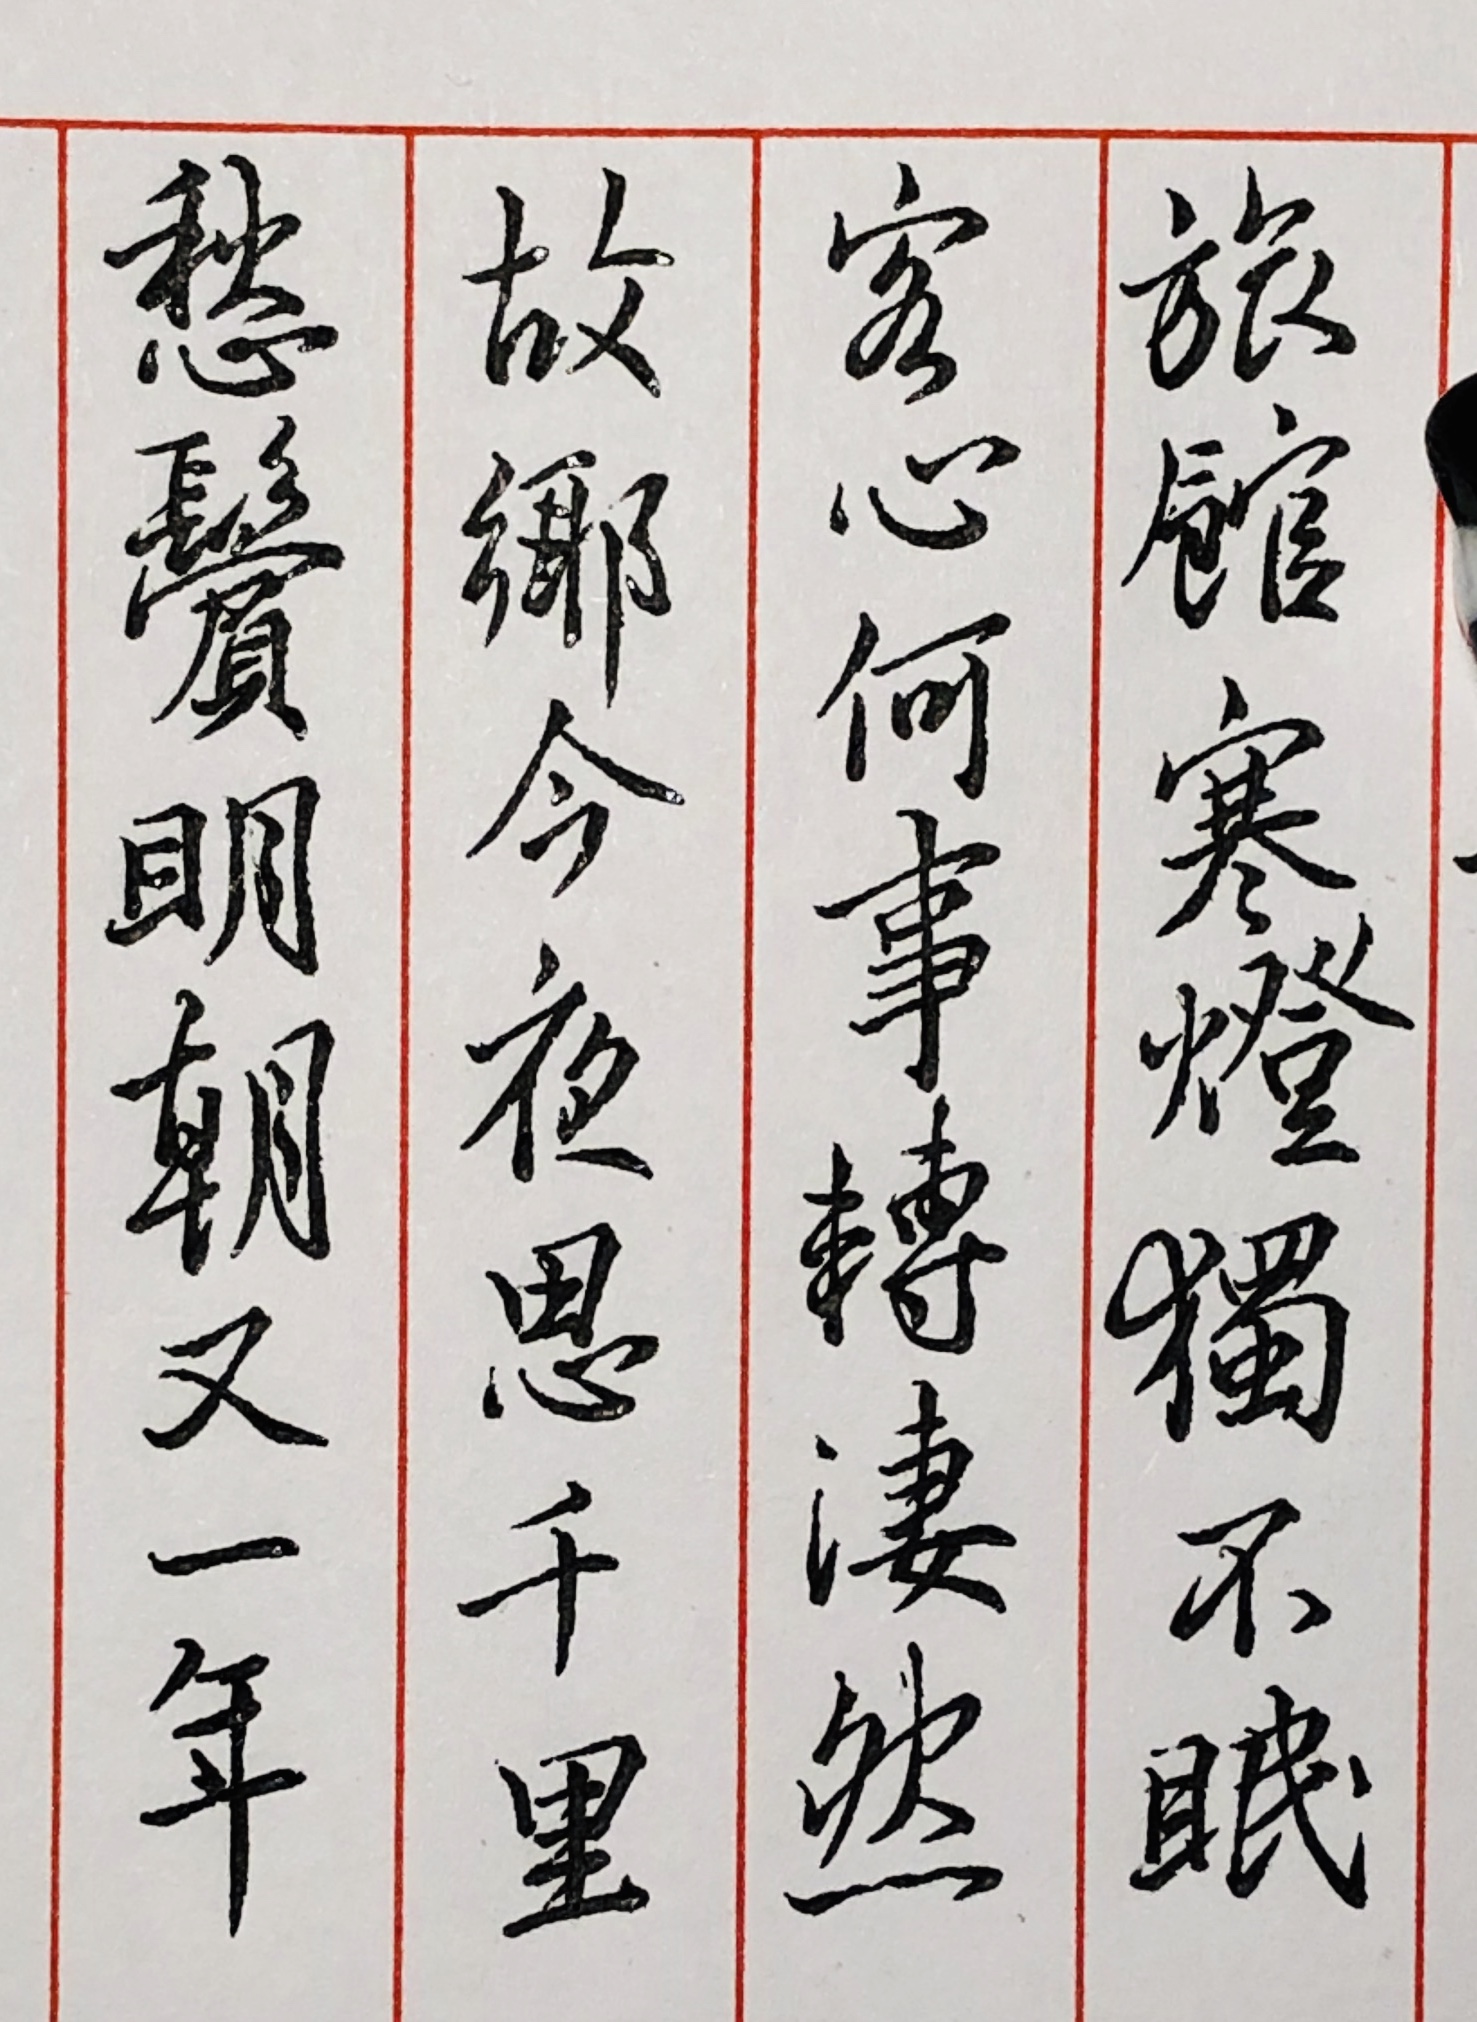 旅館寒燈獨不眠
客心何事轉淒然
故鄉今夜思千里
愁鬢明朝又一年